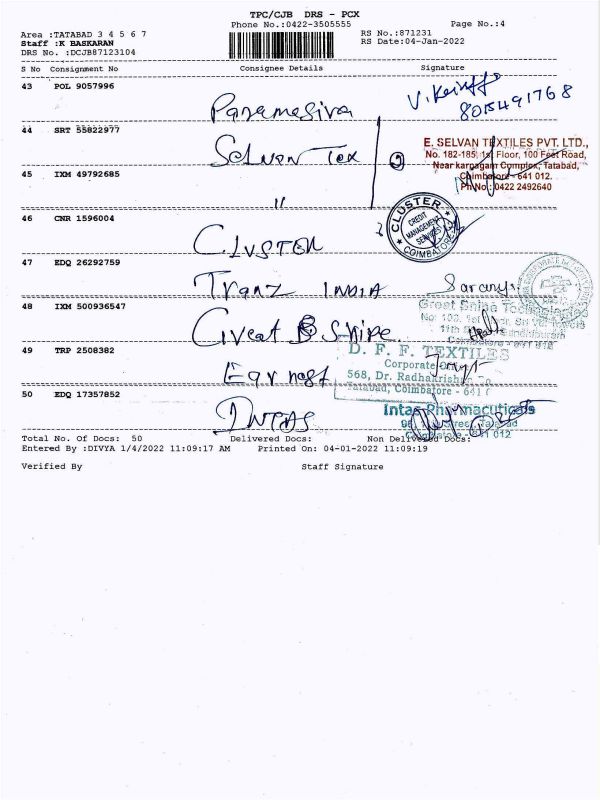 TPC/CJB DRS - PCX
Phone No.:0422-3505555
Page No.:4
Area :TATABAD 3 4 5 6 7
Staff :K BASKARAN
DRS No. :DCJB87123104
RS No.:871231
RS Date:04-Jan-2022
S No Consignment No Consignee Details Signature
43 POL 9057996
Paramasiva
8015491768
44 SRT 55822977
Selvan Tex
E. SELVAN TEXTILES PVT. LTD.,
No. 182-185, 1st Floor, 100 Feet Road,
Near karpagam Complex, Tatabad,
Coimbatore - 641 012.
Ph No : 0422 2492640
45 IXM 49792685
"
46 CNR 1596004
CLUSTER
CLUSTER
CREDIT
MANAGEMENT
SERVICES
COIMBATORE
47 EDQ 26292759
Tranz INDIA
Saranya
48 IXM 500936547
Great Shine
Great Shine
49 TRP 2508382
D. F. F. TEXTILES
Corporate
568, Dr. Radhakrishnan
Tatabad, Coimbatore - 641
50 EDQ 17357852
INTAS
Intas Pharmaceuticals
Total No. Of Docs: 50 Delivered Docs: Non Delivered Docs:
Entered By :DIVYA 1/4/2022 11:09:17 AM Printed On: 04-01-2022 11:09:19
Verified By Staff Signature